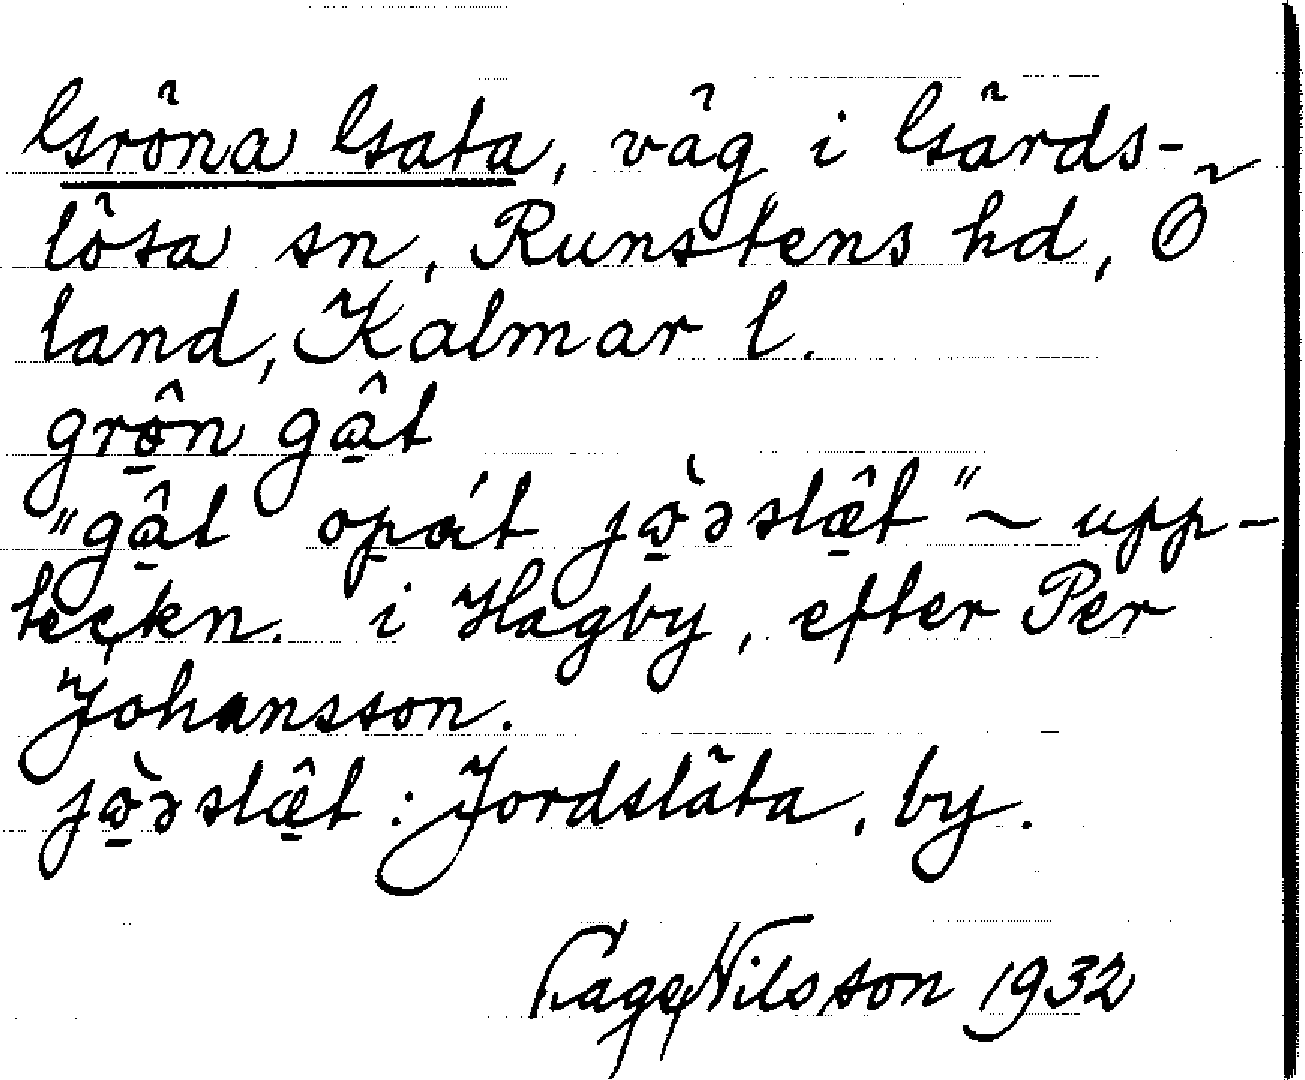 Gröna Gata, väg i Gärds-
lösa sn, Runstens hd, Ö
land, Kalmar l.
grö̱̂n gâ̱t
"gâ̱t opát jö̱̀əslæ̱̂t" ~ upp-
teckn. i Hagby, efter Per
Johansson.
jö̱̀əslæ̱̂t : Jordsläta, by.
Tage Nilsson 1932